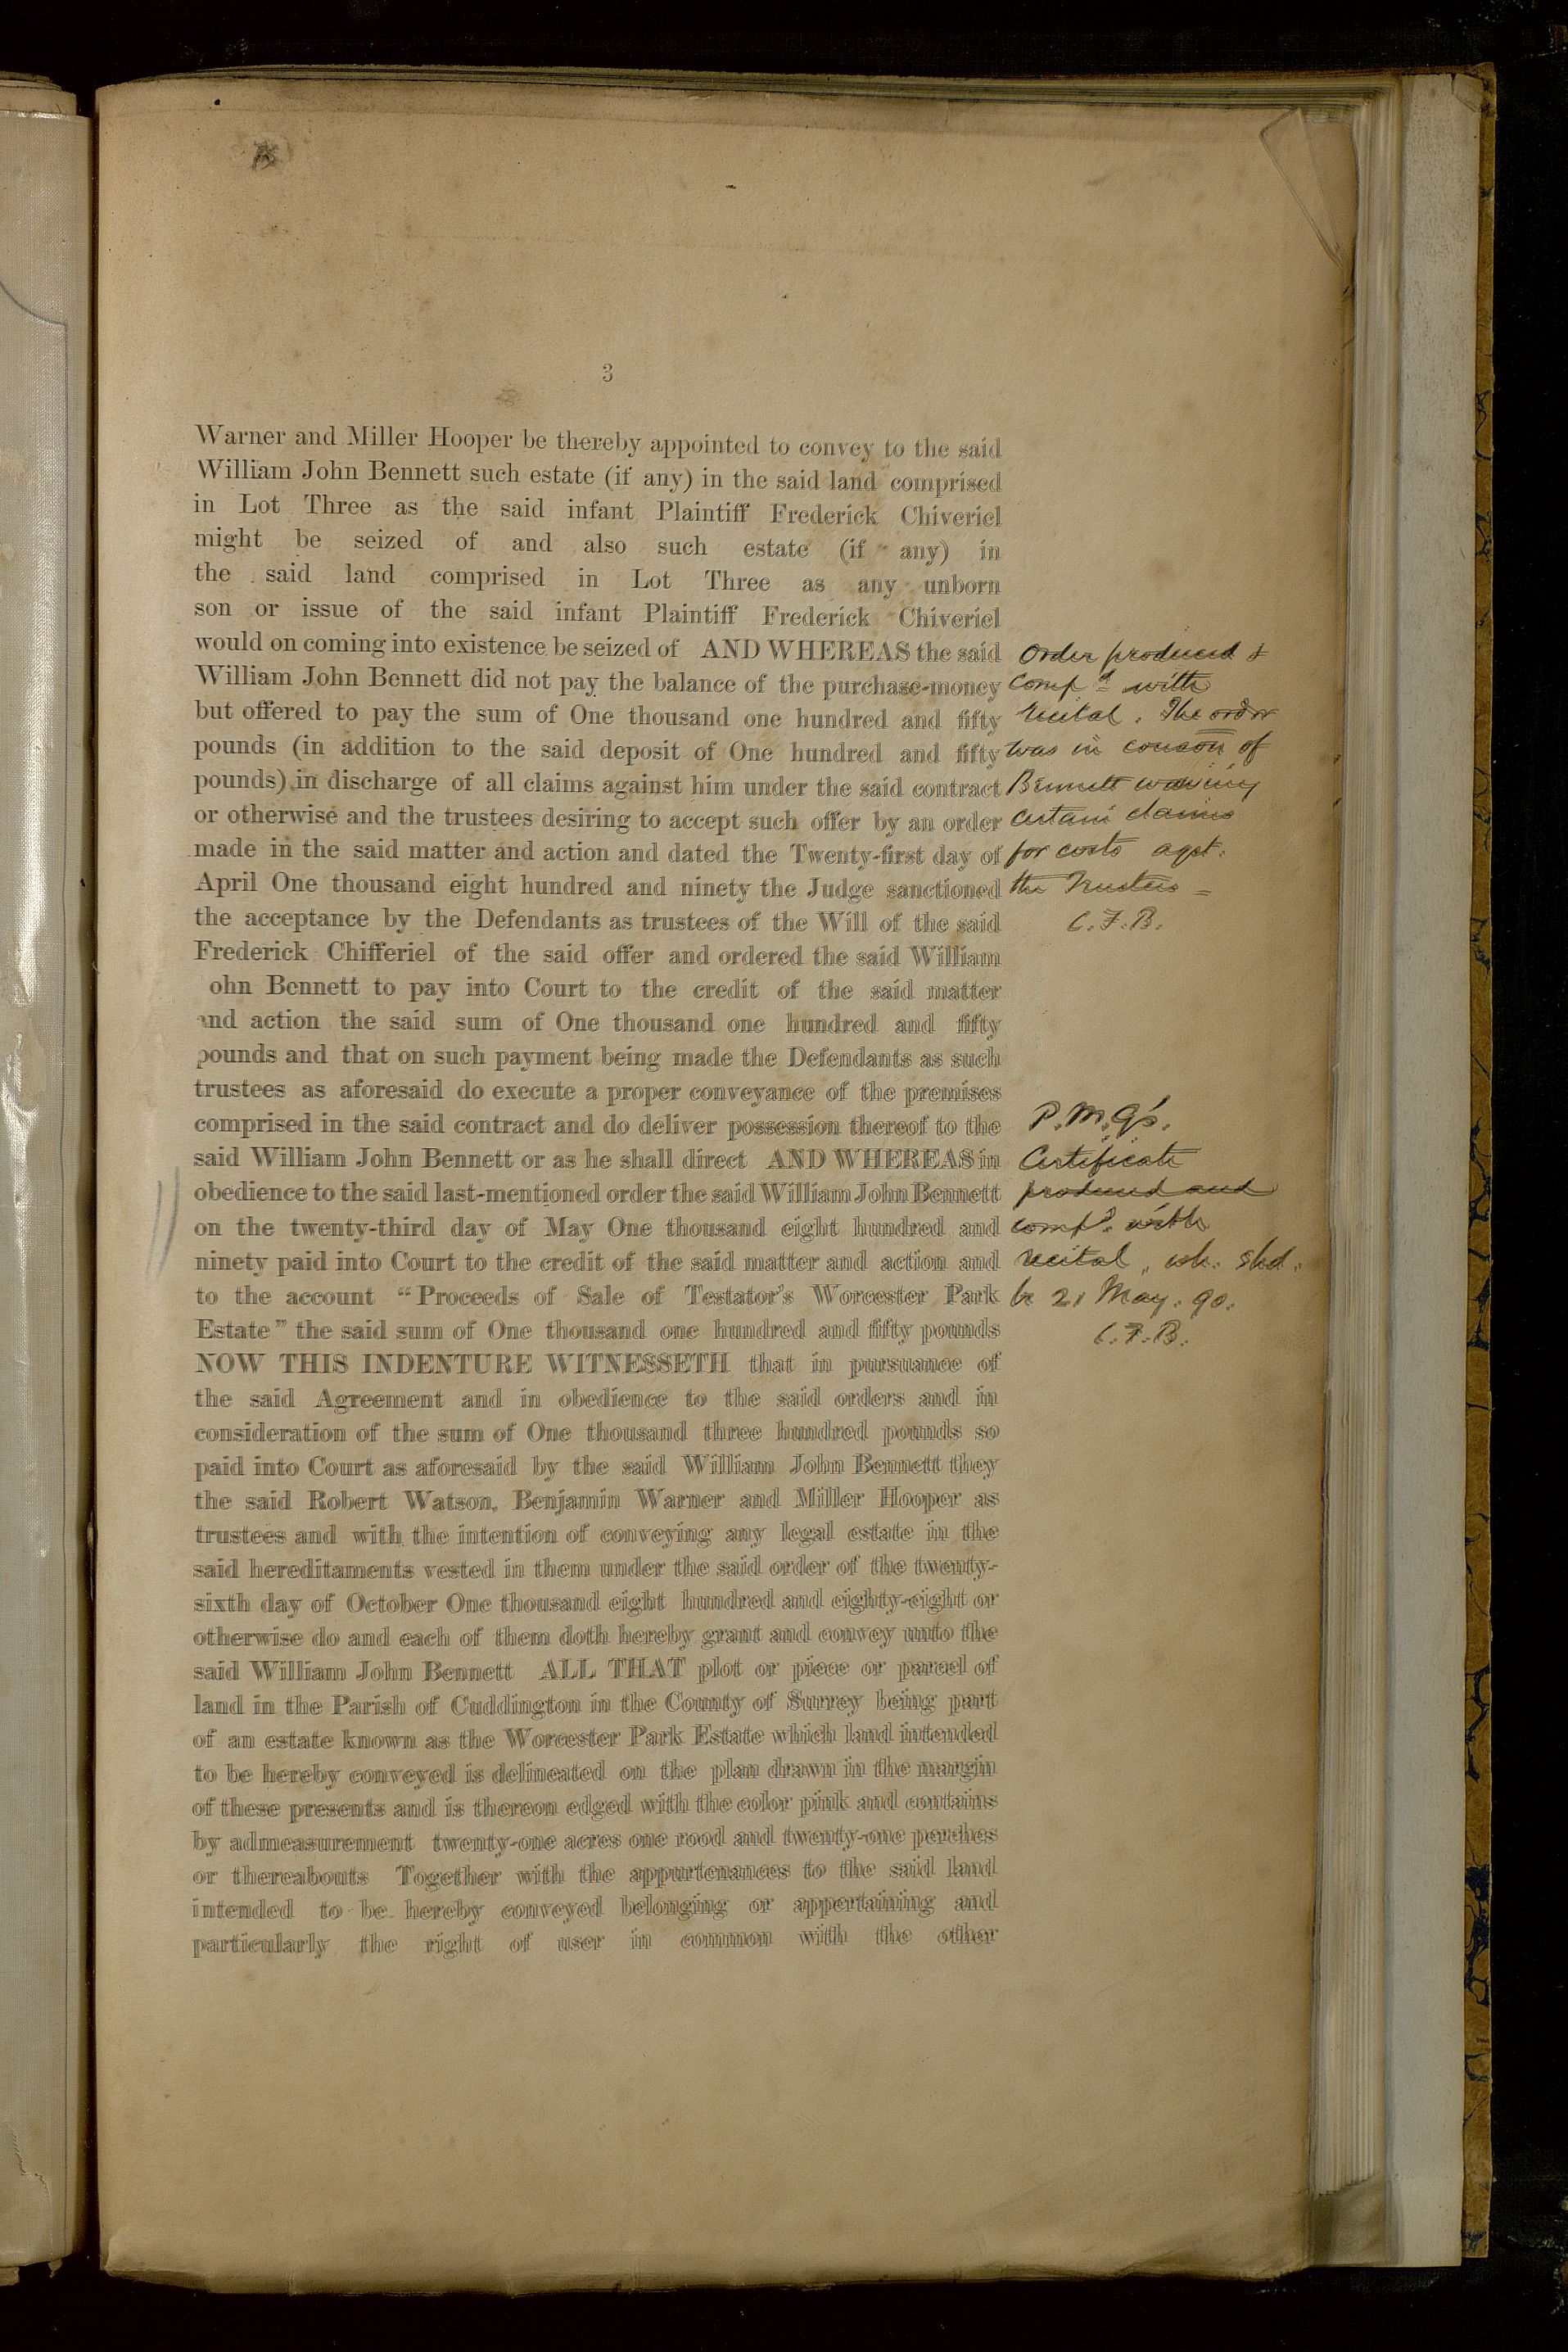 3
Warner and Miller Hooper be thereby appointed to convey to the said
William John Bennett such estate (if any) in the said land comprised
in Lot Three as the said infant Plaintiff Frederick Chiveriel
might be seized of and also such estate (if any) in
the said land comprised in Lot Three as any unborn
son or issue of the said infant Plaintiff Frederick Chiveriel
would on coming into existence be seized of AND WHEREAS the said
William John Bennett did not pay the balance of the purchase-money
but offered to pay the sum of One thousand one hundred and fifty
pounds (in addition to the said deposit of One hundred and fifty
pounds) in discharge of all claims against him under the said contract
or otherwise and the trustees desiring to accept such offer by an order
made in the said matter and action and dated the Twenty-first day of
April One thousand eight hundred and ninety the Judge sanctioned
the acceptance by the Defendants as trustees of the Will of the said
Frederick Chifferiel of the said offer and ordered the said William
ohn Bennett to pay into Court to the credit of the said matter
and action the said sum of One thousand one hundred and fifty
pounds and that on such payment being made the Defendants as such
trustees as aforesaid do execute a proper conveyance of the premises
comprised in the said contract and do deliver possession thereof to the
said William John Bennett or as he shall direct AND WHEREAS in
obedience to the said last-mentioned order the said William John Bennett
on the twenty-third day of May One thousand eight hundred and
ninety paid into Court to the credit of the said matter and action and
to the account “Proceeds of Sale of Testator's Worcester Park
Estate” the said sum of One thousand one hundred and fifty pounds
NOW THIS INDENTURE WITNESSETH that in pursuance of
the said Agreement and in obedience to the said orders and in
consideration of the sum of One thousand three hundred pounds so
paid into Court as aforesaid by the said William John Bennett they
the said Robert Watson, Benjamin Warner and Miller Hooper as
trustees and with the intention of conveying any legal estate in the
said hereditaments vested in them under the said order of the twenty-
sixth day of October One thousand eight hundred and eighty-eight or
otherwise do and each of them doth hereby grant and convey unto the
said William John Bennett ALL THAT plot or piece or parcel of
land in the Parish of Cuddington in the County of Surrey being part
of an estate known as the Worcester Park Estate which land intended
to be hereby conveyed is delineated on the plan drawn in the margin
of these presents and is thereon edged with the color pink and contains
by admeasurement twenty-one acres one rood and twenty-one perches
or thereabouts Together with the appurtenances to the said land
intended to be hereby conveyed belonging or appertaining and
particularly the right of user in common with the other
Order produced &
comp d with
recital. The order
was in conson of
Bennett waiving
certain claims
for costs agst.
the Trustees =
C.F.B.
P.M.G's.
Certificate
produced and
compd. with
recital, wh. shd.
be 21 May. 90.
C.F.B.